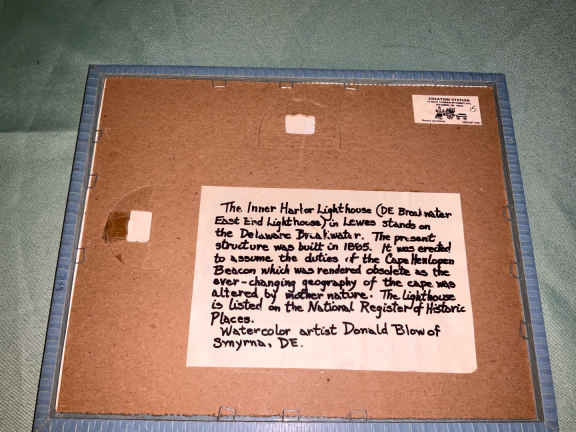 CREATIVE STATION
The Inner Harbor Lighthouse (DE Breakwater
East End Lighthouse) in Lewes stands on
the Delaware Breakwater. The present
structure was built in 1885. It was erected
to assume the duties of the Cape Henlopen
Beacon which was rendered obsolete as the
ever-changing geography of the cape was
altered by mother nature. The lighthouse
is listed on the National Register of Historic
Places.
Watercolor artist Donald Blow of
Smyrna, DE.